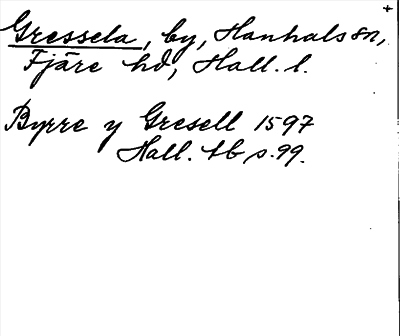 Gressela, by, Hanhals sn,
Fjäre hd, Hall. l.
Byrre y Gresell 1597
Hall. tb s. 99.